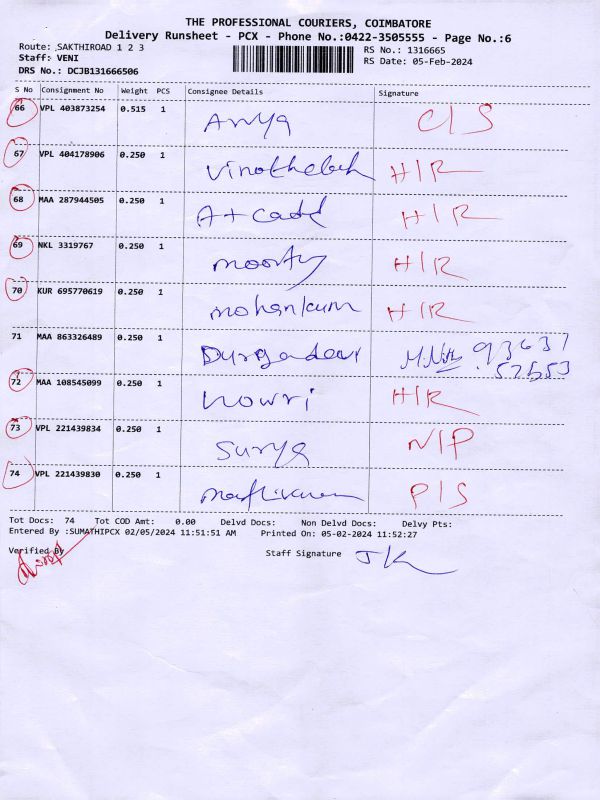 THE PROFESSIONAL COURIERS, COIMBATORE
Delivery Runsheet - PCX - Phone No.:0422-3505555 - Page No.:6
Route: SAKTHIROAD 1 2 3 RS No.: 1316665
Staff: VENI RS Date: 05-Feb-2024
DRS No.: DCJB131666506
S No Consignment No Weight PCS Consignee Details Signature
66 VPL 403873254 0.515 1 Anya C/S
67 VPL 404178906 0.250 1 H/R
68 MAA 287944505 0.250 1 H/R
69 NKL 3319767 0.250 1 moorty H/R
70 KUR 695770619 0.250 1 mohankum H/R
71 MAA 863326489 0.250 1 Durgadevi 93631
72 MAA 108545099 0.250 1 nowri H/R
73 VPL 221439834 0.250 1 Surya N/P
74 VPL 221439830 0.250 1 P/S
Tot Docs: 74 Tot COD Amt: 0.00 Delvd Docs: Non Delvd Docs: Delvy Pts:
Entered By :SUMATHIPCX 02/05/2024 11:51:51 AM Printed On: 05-02-2024 11:52:27
Verified By Staff Signature JK